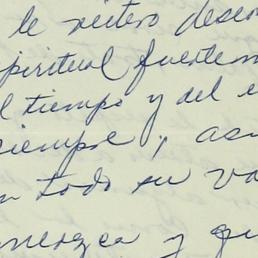 le reitero deseo
spiritual fuertem
l tiempo y del e
siempre, as
n todo su va
nerezca y qu